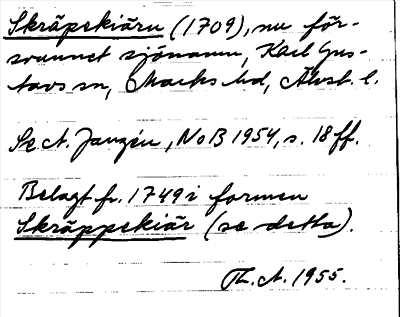 Skräpekiäru (1709), nu för-
svunnet sjönamn, Karl Gus-
tavs sn, Marks hd, Älvsb. l.
Se A. Janzén, NoB 1954, s. 18 ff.
Belagt fr. 1749 i formen
Skräppekiär (se detta).
Th. A. 1955.